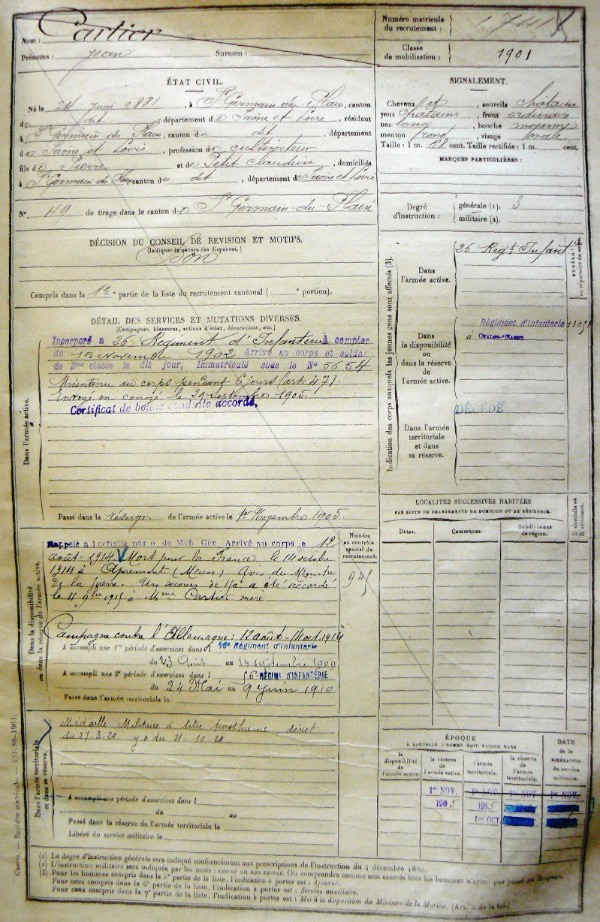 Nom : Cartier
Prénoms : Jean Surnom :
Numéro matricule
du recrutement :
Classe
de mobilisation : 1901
ÉTAT CIVIL.
Né le 24 juin 1881, à St Germain du Plain, canton
du dit, département de Saône et Loire, résidant
à St Germain du Plain, canton du dit, département
de Saône et Loire, profession de cultivateur
fils de Pierre et de Petit Claudine, domiciliés
à St Germain du Plain, canton du dit, département de Saône et Loire
N° 49 de tirage dans le canton de St Germain-du-Plain
SIGNALEMENT.
Cheveux et sourcils châtains
yeux châtains, front ordinaire
nez long, bouche moyenne
menton rond, visage ovale
Taille : 1 m. cent. Taille rectifiée : 1 m. cent.
MARQUES PARTICULIÈRES :
Degré
d'instruction :
générale (1). 3
militaire (2).
DÉCISION DU CONSEIL DE REVISION ET MOTIFS.
(Indiquer la nature des dispenses.)
Bon
Compris dans la 1e partie de la liste du recrutement cantonal ( portion).
DÉTAIL DES SERVICES ET MUTATIONS DIVERSES.
(Campagnes, blessures, actions d'éclat, décorations, etc.)
Dans l'armée active.
Incorporé au 26 Régiment d'Infanterie à compter
du 15 Novembre 1902 Arrivé au corps et soldat
de 2ème classe le dit jour, Immatriculé sous le N° 5654
Maintenu au corps pendant 8 jours (art. 47)
Envoyé en congé le Septembre 1905.
Certificat de bonne conduite accordé.
Passé dans la réserve de l'armée active le 1er Novembre 1905
Indication des corps auxquels les jeunes gens sont affectés (3).
Dans
l'armée active.
26 Regt Infant
Dans
la disponibilité
ou dans la réserve
de l'armée
active.
Régiment d'infanterie
à
Dans l'armée
territoriale
et dans
sa réserve.
DÉCÉDÉ
LOCALITÉS SUCCESSIVES HABITÉES
PAR SUITE DE CHANGEMENTS DE DOMICILE OU DE RÉSIDENCE.
Dates.
Communes.
Subdivisions
de région.
Dans la disponibilité
ou dans la réserve de l'armée active.
Rappelé à l'activité par o. de Mob. Gén. Arrivé au corps le 12
août 1914. Mort pour la France le 14 octobre
1914 à Apremont (Meuse) Avis du Ministre
de la guerre. Un secours de 150 a été accordé
le 11 9bre 1915 à Mme Cartier mère
Numéro
au contrôle
spécial du
recrutement.
Campagne contre l'Allemagne : 12 août - 14 oct 1914
A accompli une 1re période d'exercices dans l 16e Régiment d'infanterie
du 23 Août au 14 septembre 1909
A accompli une 2e période d'exercices dans l RÉGIMENT D'INFANTERIE
du 24 Mai au 9 juin 1910
Passé dans l'armée territoriale le
Dans l'armée territoriale
et dans sa réserve.
Médaille Militaire à titre posthume décret
du 27-3-20
A accompli une période d'exercices dans l
du au
Passé dans la réserve de l'armée territoriale le
Libéré du service militaire le
ÉPOQUE
À LAQUELLE L'HOMME DOIT PASSER DANS
la
disponibilité
de l'armée active.
la réserve
de
l'armée active.
l'armée
territoriale.
la réserve
de l'armée
territoriale.
DATE
de la
LIBÉRATION
du service
militaire.
1er NOV. 1er NOV. 1er NOV. 1er NOV.
1905 1915
1er OCT.
(1) Le degré d'instruction générale sera indiqué conformément aux prescriptions de l'instruction du 4 décembre 1889.
(2) L'instruction militaire sera indiquée par les mots : exercé ou non exercé.
(3) Pour les hommes compris dans la 2e partie de la liste, l'indication à porter est : Ajourné.
Pour ceux compris dans la 5e partie de la liste, l'indication à porter est : Service auxiliaire.
Pour ceux compris dans la 7e partie de la liste, l'indication à porter est : Mis à la disposition du Ministre de la Marine.